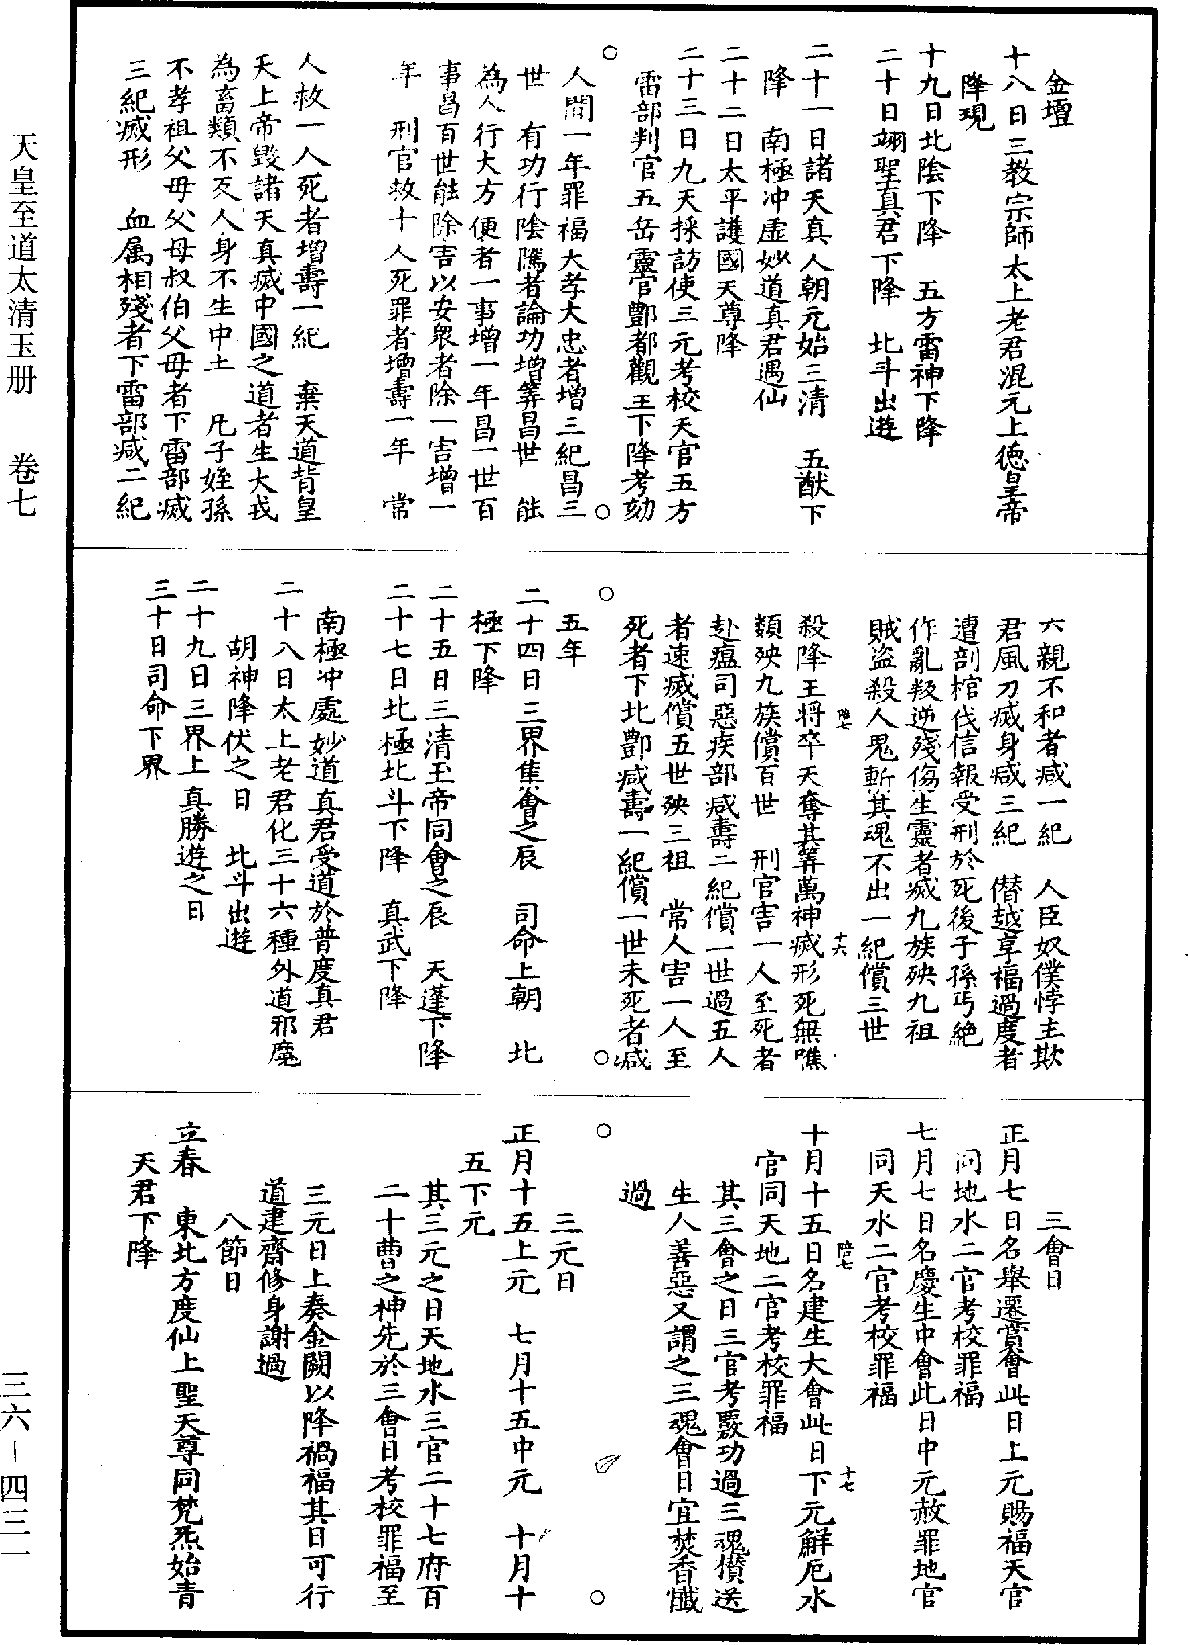 金壇
十八日三教宗師太上老君混元上德皇帝
降現
十九日北陰下降　五方雷神下降
二十日翊聖真君下降　北斗出遊
二十一日諸天真人朝元始三清　五猷下
降　南極冲虛妙道真君遇仙
二十二日太平護國天尊降
二十三日九天採訪使三元考校天官五方
雷部判官五岳靈官酆都觀王下降考劾
人間一年罪福大孝大忠者增三紀昌三
世　有功行陰騭者論功增筭昌世　能
為人行大方便者一事增一年昌一世百
事昌百世能除害以安眾者除一害增一
年　刑官救十人死罪者增壽一年　常
人救一人死者增壽一紀　棄天道背皇
天上帝毀諸天真滅中國之道者生大戎
為畜類不反人身不生中土　凡子姪孫
不孝祖父母父母叔伯父母者下雷部滅
三紀滅形　血属相殘者下雷部減二紀
六親不和者減一紀　人臣奴僕悖主欺
君風刀滅身減三紀　僣越享福過度者
遭剖棺伐信報受刑於死後子孫丐絕
作亂叛逆殘傷生靈者滅九族殃九祖
賊盜殺人鬼斬其魂不出一紀償三世
殺降王將卒天奪其筭萬神滅形死無噍
類殃九族償百世　刑官害一人至死者
赴瘟司惡疾部減壽二紀償一世過五人
者速滅償五世殃三祖　常人害一人至
死者下北酆減壽一紀償一世未死者減
五年
二十四日三界集會之辰　司命上朝　北
極下降
二十五日三清玉帝同會之辰　天蓬下降
二十七日北極北斗下降　真武下降
南極冲處妙道真君受道於普度真君
二十八日太上老君化三十六種外道邪魔
胡神降伏之日　北斗出遊
二十九日三界上真勝遊之日
三十日司命下界
三會日
正月七日名舉遷賞會此日上元賜福天官
同地水二官考校罪福
七月七日名慶生中會此日中元赦罪地官
同天水二官考校罪福
十月十五日名建生大會此日下元解厄水
官同天地二官考校罪福
其三會之日三官考覈功過三魂儧送
生人善惡又謂之三魂會日宜焚香懺
過
三元日
正月十五上元　七月十五中元　十月十
五下元
其三元之日天地水三官二十七府百
二十曹之神先於三會日考校罪福至
三元日上奏金闕以降禍福其日可行
道建齋修身謝過
八節日
立春　東北方度仙上聖天尊同梵炁始青
天君下降
天皇至道太清玉册　卷七
三六－四三一